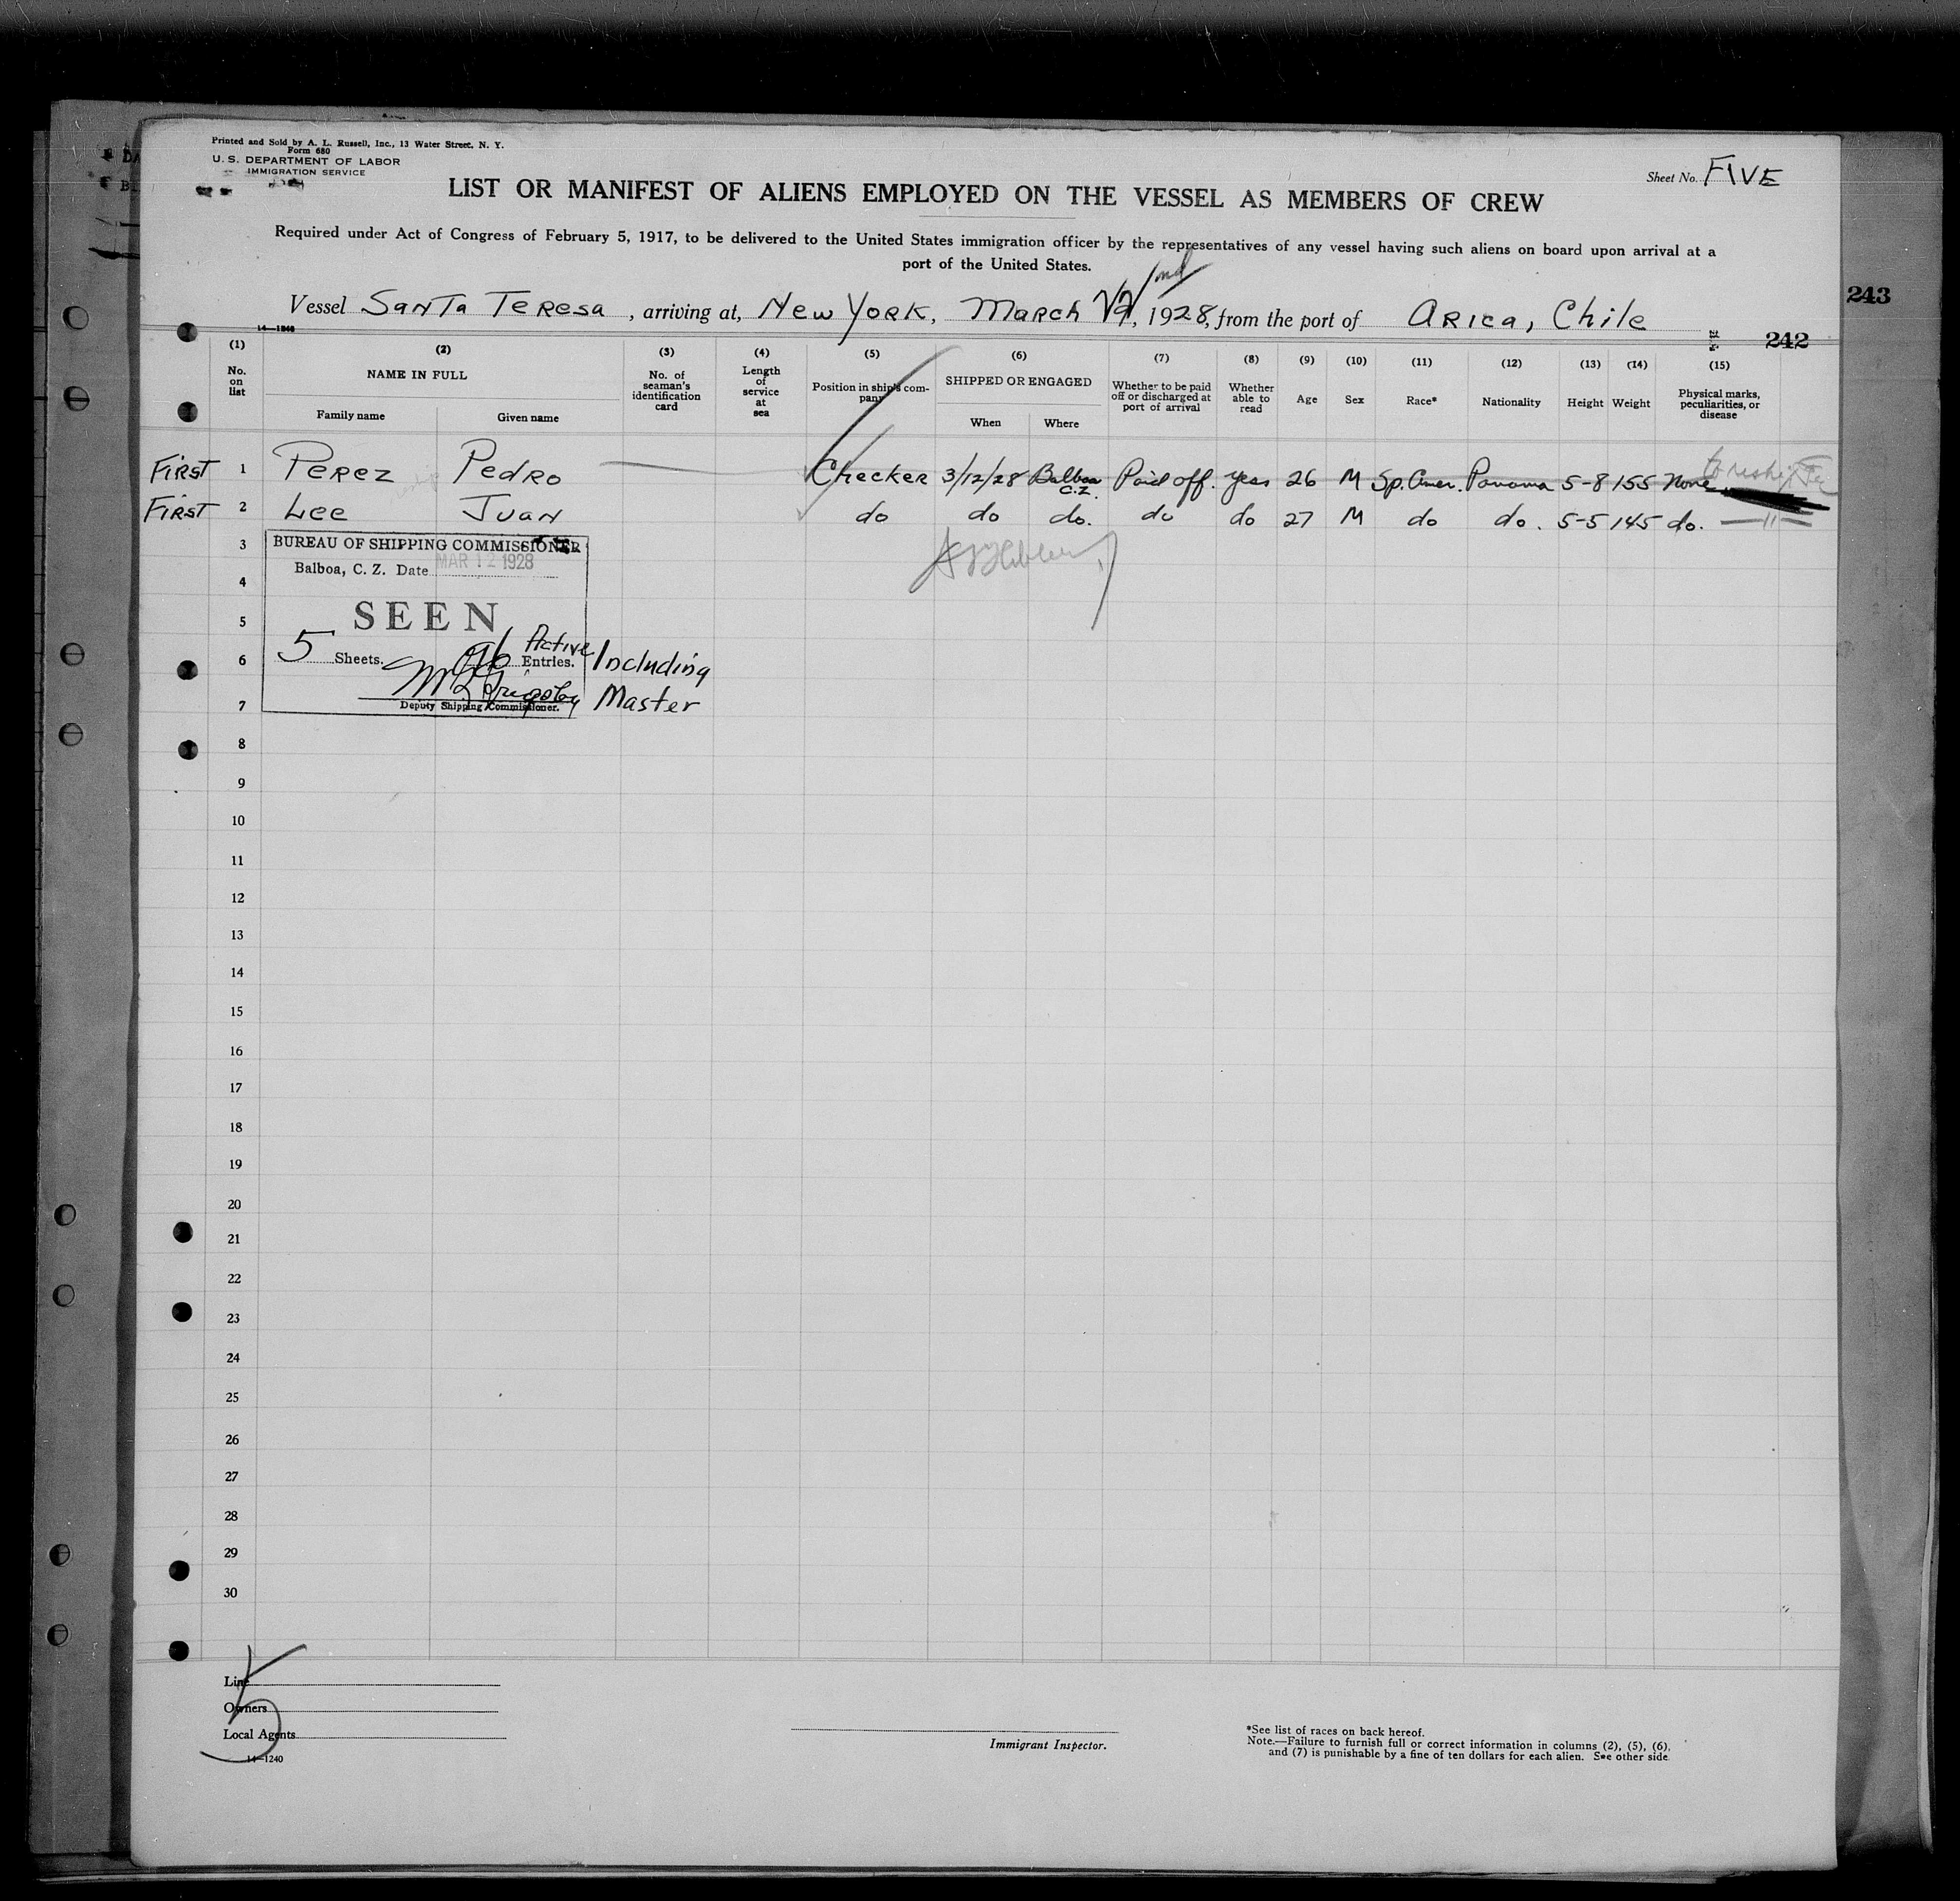 Printed and Sold by A. L. Russell, Inc., 13 Water Street, N. Y.
Form 680
U. S. DEPARTMENT OF LABOR
IMMIGRATION SERVICE
Sheet No. FIVE
LIST OR MANIFEST OF ALIENS EMPLOYED ON THE VESSEL AS MEMBERS OF CREW
Required under Act of Congress of February 5, 1917, to be delivered to the United States immigration officer by the representatives of any vessel having such aliens on board upon arrival at a
port of the United States.
243
Vessel Santa Teresa, arriving at, New York, March 1928, from the port of Arica, Chile
14—1240
242
(1) (2) (3) (4) (5) (6) (7) (8) (9) (10) (11) (12) (13) (14) (15)
No. on list
NAME IN FULL
Family name Given name
No. of seaman's identification card
Length of service at sea
Position in ship's company
SHIPPED OR ENGAGED
When Where
Whether to be paid off or discharged at port of arrival
Whether able to read
Age
Sex
Race*
Nationality
Height
Weight
Physical marks, peculiarities, or disease
First 1 Perez Pedro Checker 3/12/28 Balboa C.Z. Paid off. yes 26 M Sp. Amer. Panama 5-8 155 None
First 2 Lee Juan do do do. do do 27 M do do. 5-5 145 do. — 11 —
3
BUREAU OF SHIPPING COMMISSIONER
Balboa, C. Z. Date MAR 12 1928
4
5
SEEN
6
5 Sheets. 96 Active Entries. Including
Master
7
Deputy Shipping Commissioner.
8
9
10
11
12
13
14
15
16
17
18
19
20
21
22
23
24
25
26
27
28
29
30
5
Line
Owners
Local Agents
14—1240
Immigrant Inspector.
*See list of races on back hereof.
Note.—Failure to furnish full or correct information in columns (2), (5), (6),
and (7) is punishable by a fine of ten dollars for each alien. See other side